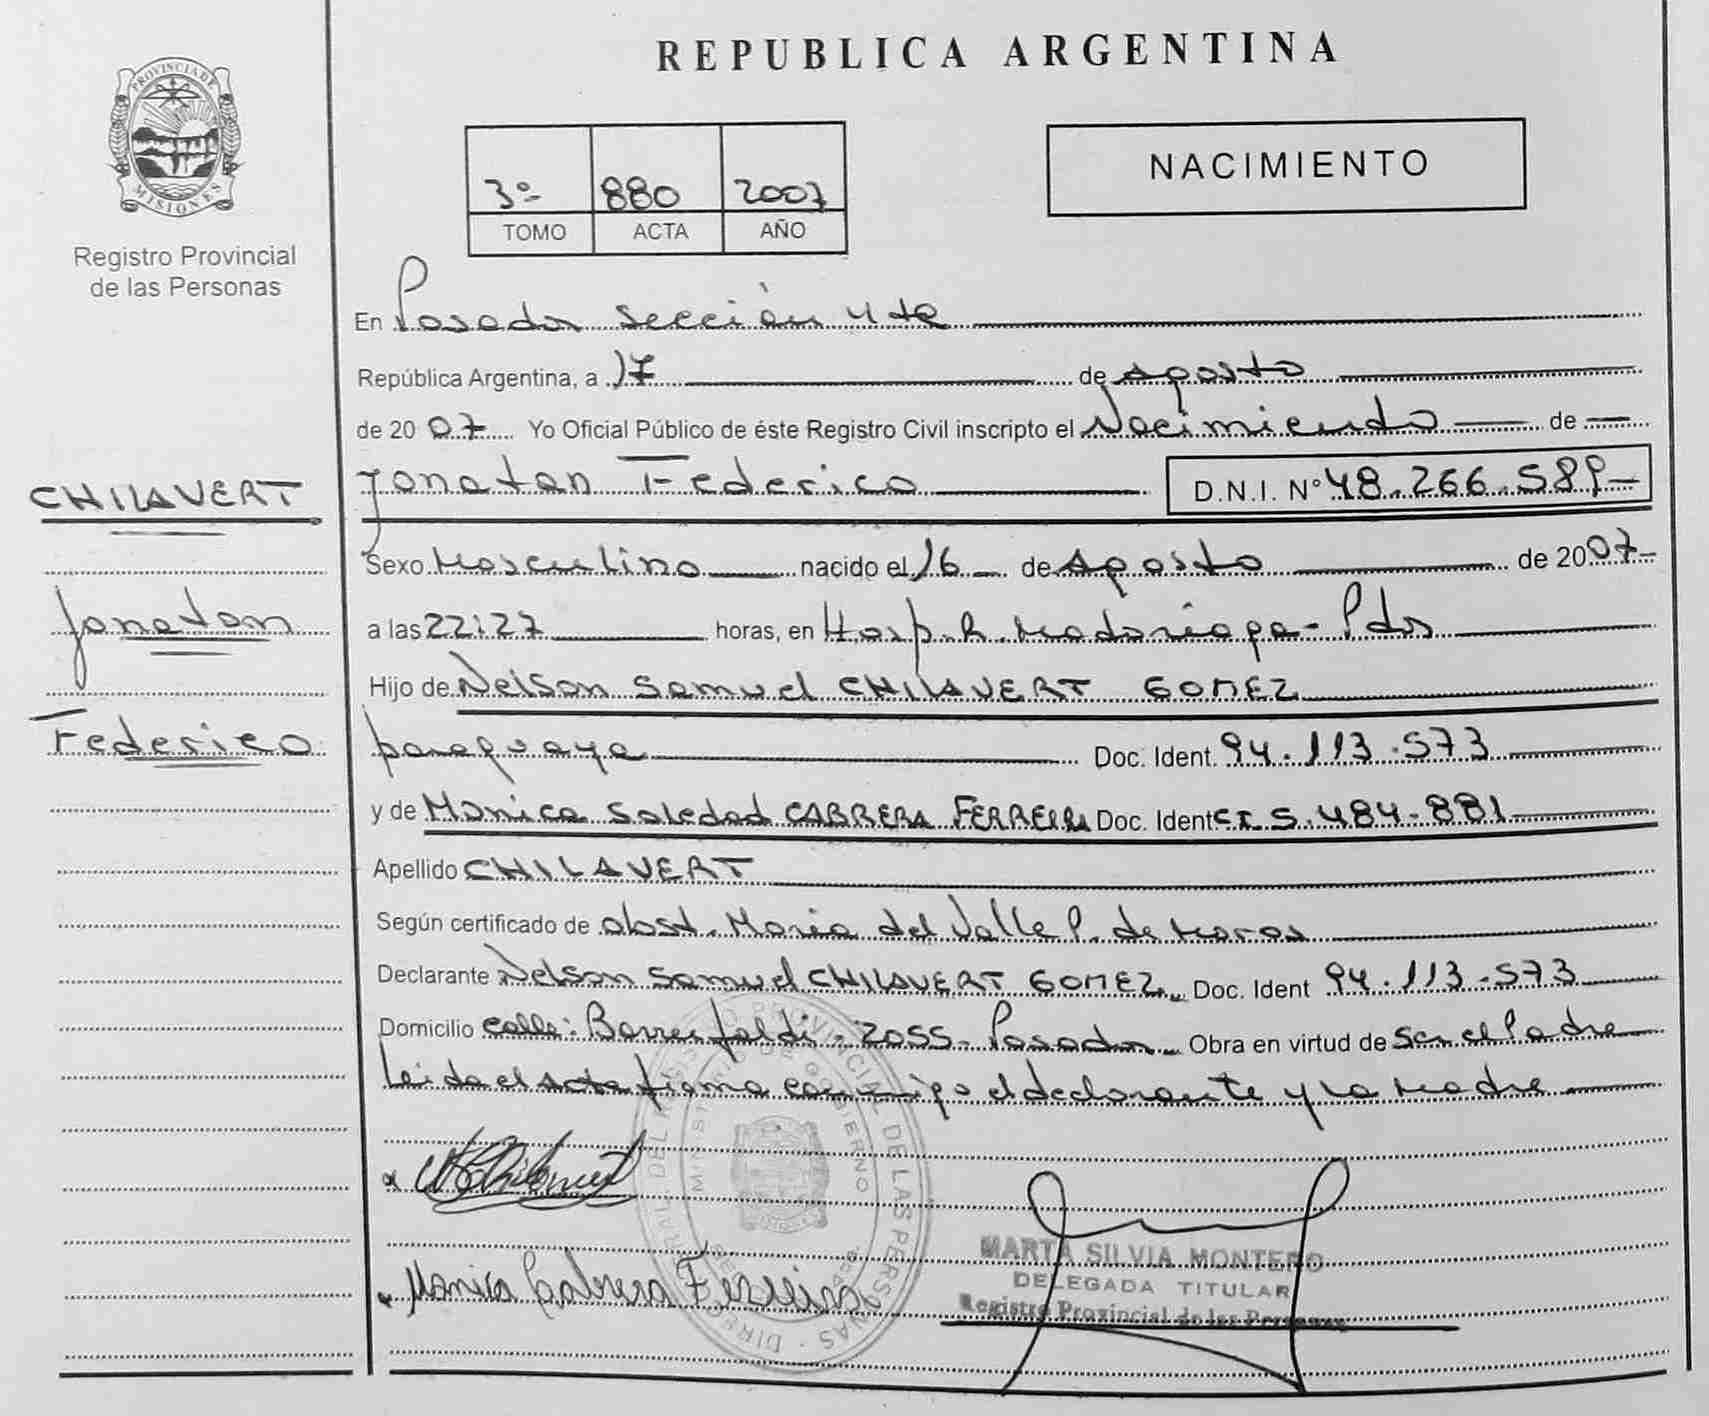 REPUBLICA ARGENTINA
PROVINCIA DE
MISIONES
Registro Provincial
de las Personas
3º 880 2007
TOMO ACTA AÑO
NACIMIENTO
En Posadas sección 4ta
República Argentina, a 17 de Agosto
de 2007 Yo Oficial Público de éste Registro Civil inscripto el Nacimiento de
Jonatan Federico D.N.I. Nº 48.266.589
CHILAVERT
Jonatan
Federico
Sexo Masculino nacido el 16 de Agosto de 2007
a las 22:27 horas, en Hosp. R. Madariaga - Pdas
Hijo de Nelson Samuel CHILAVERT GOMEZ
paraguaya Doc. Ident. 94.113.573
y de Monica Soledad CABRERA FERREIRA Doc. Ident C.I. 5.484.881
Apellido CHILAVERT
Según certificado de obst. Maria del Valle P. de
Declarante Nelson Samuel CHILAVERT GOMEZ Doc. Ident 94.113.573
Domicilio calle: 2055 - Posadas Obra en virtud de ser el Padre
Leida el acta firma conmigo el declarante y la madre
x
Monica Cabrera Ferreira
MARTA SILVIA MONTERO
DELEGADA TITULAR
Registro Provincial de las Personas
MINISTERIO DE GOBIERNO